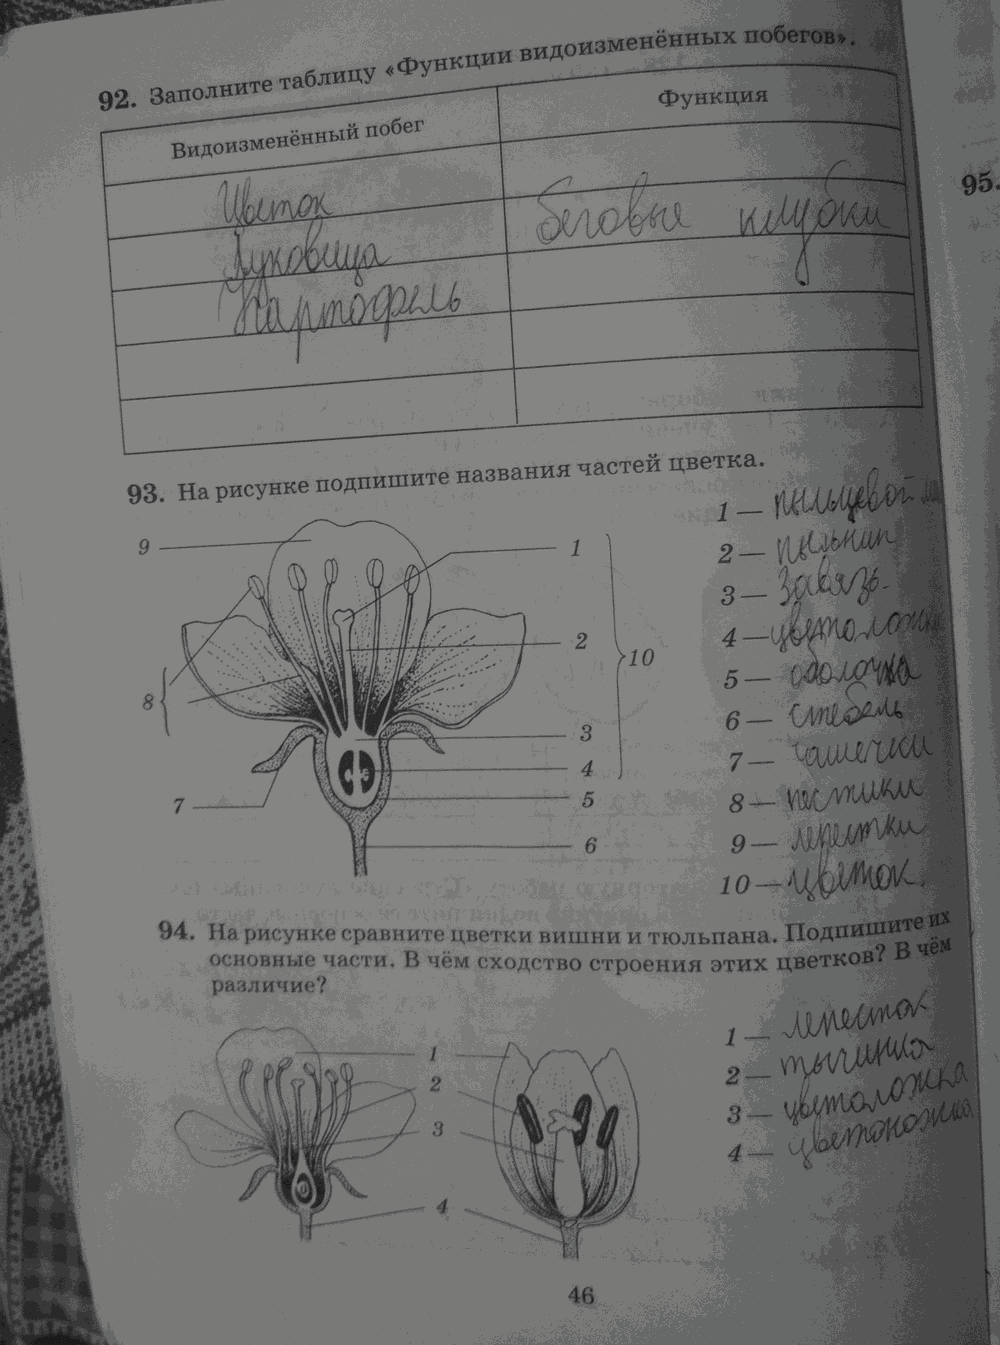 92. Заполните таблицу «Функции видоизменённых побегов».
Видоизменённый побег Функция
Цветок
Луковица беговые клубки
Картофель
95.
93. На рисунке подпишите названия частей цветка.
9 1 2 10 8 3 4 7 5 6
1 — пыльцевой
2 — пыльник
3 — Завязь.
4 — цветоложка
5 — оболочка
6 — стебель
7 — чашечки
8 — пестики
9 — лепестки
10 — цветок.
94. На рисунке сравните цветки вишни и тюльпана. Подпишите их
основные части. В чём сходство строения этих цветков? В чём
различие?
1 2 3 4
1 — лепесток
2 — тычинка
3 — цветоложка
4 — цветоножка
46